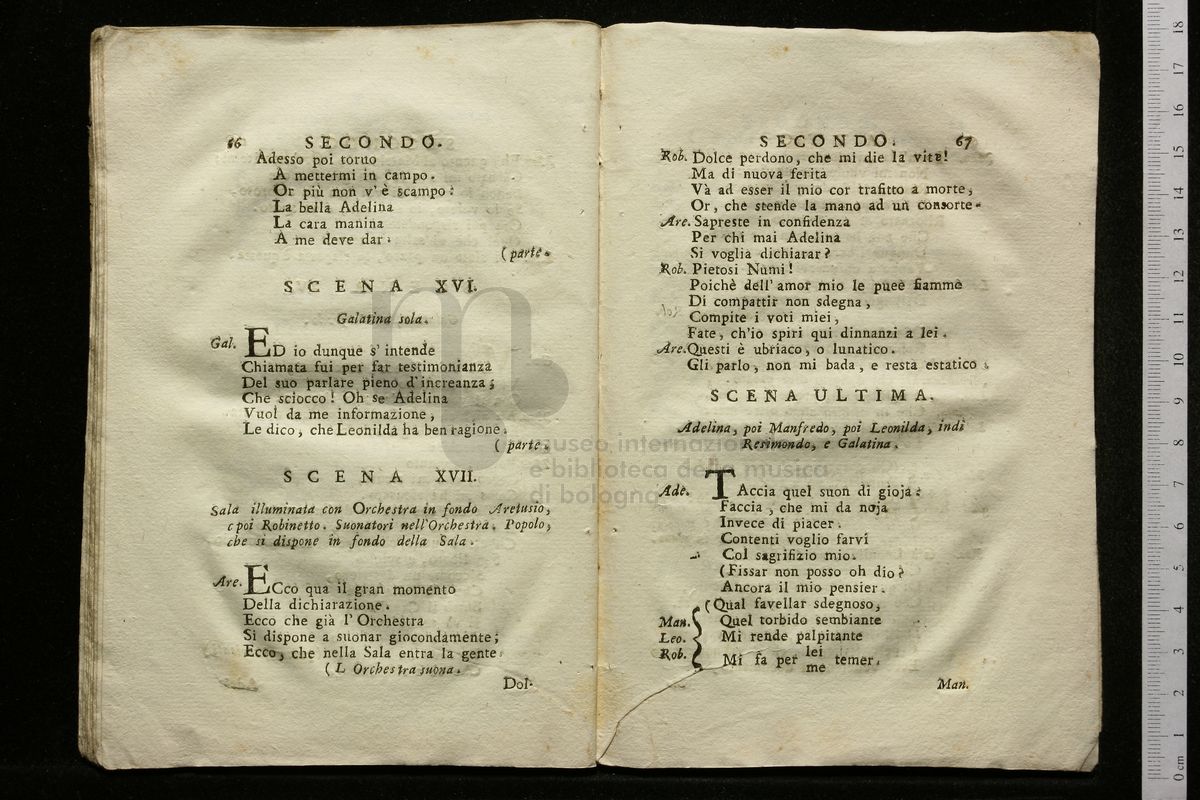 66 SECONDO.
Adesso poi torno
A mettermi in campo.
Or più non v'è scampo:
La bella Adelina
La cara manina
A me deve dar.
(parte.
SCENA XVI.
Galatina sola.
Gal. ED io dunque s'intende
Chiamata fui per far testimonianza
Del suo parlare pieno d'increanza;
Che sciocco! Oh se Adelina
Vuol da me informazione,
Le dico, che Leonilda ha ben ragione.
(parte.
SCENA XVII.
Sala illuminata con Orchestra in fondo Aretusio,
e poi Robinetto. Suonatori nell'Orchestra. Popolo,
che si dispone in fondo della Sala.
Are. ECco qua il gran momento
Della dichiarazione.
Ecco che già l'Orchestra
Si dispone a suonar giocondamente;
Ecco, che nella Sala entra la gente.
(L Orchestra suona.
Dol-
SECONDO. 67
Rob. Dolce perdono, che mi die la vita!
Ma di nuova ferita
Và ad esser il mio cor trafitto a morte,
Or, che stende la mano ad un consorte.
Are. Sapreste in confidenza
Per chi mai Adelina
Si voglia dichiarar?
Rob. Pietosi Numi!
Poichè dell'amor mio le puee fiamme
Di compattir non sdegna,
Compite i voti miei,
Fate, ch'io spiri qui dinnanzi a lei.
Are. Questi è ubriaco, o lunatico.
Gli parlo, non mi bada, e resta estatico.
SCENA ULTIMA.
Adelina, poi Manfredo, poi Leonilda, indi
Resimondo, e Galatina.
Ade. TAccia quel suon di gioja:
Faccia, che mi da noja
Invece di piacer.
Contenti voglio farvi
Col sagrifizio mio.
(Fissar non posso oh dio?
Ancora il mio pensier.
(Qual favellar sdegnoso,
Man. Quel torbido sembiante
Leo. Mi rende palpitante
Rob. Mi fa per lei
me temer.
Man.
museo internazionale
e biblioteca della musica
di bologna
18
17
16
15
14
13
12
11
10
9
8
7
6
5
4
3
2
1
0 cm